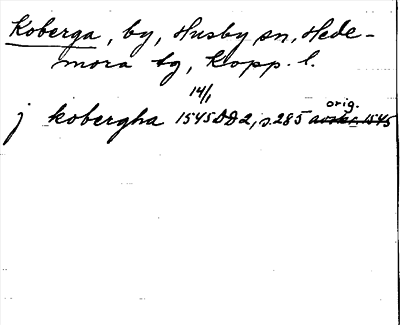 Koberga, by, Husby sn, Hede-
mora tg, Kopp. l.
14/1
j kobergha 1545 DD2, s. 285 orig.